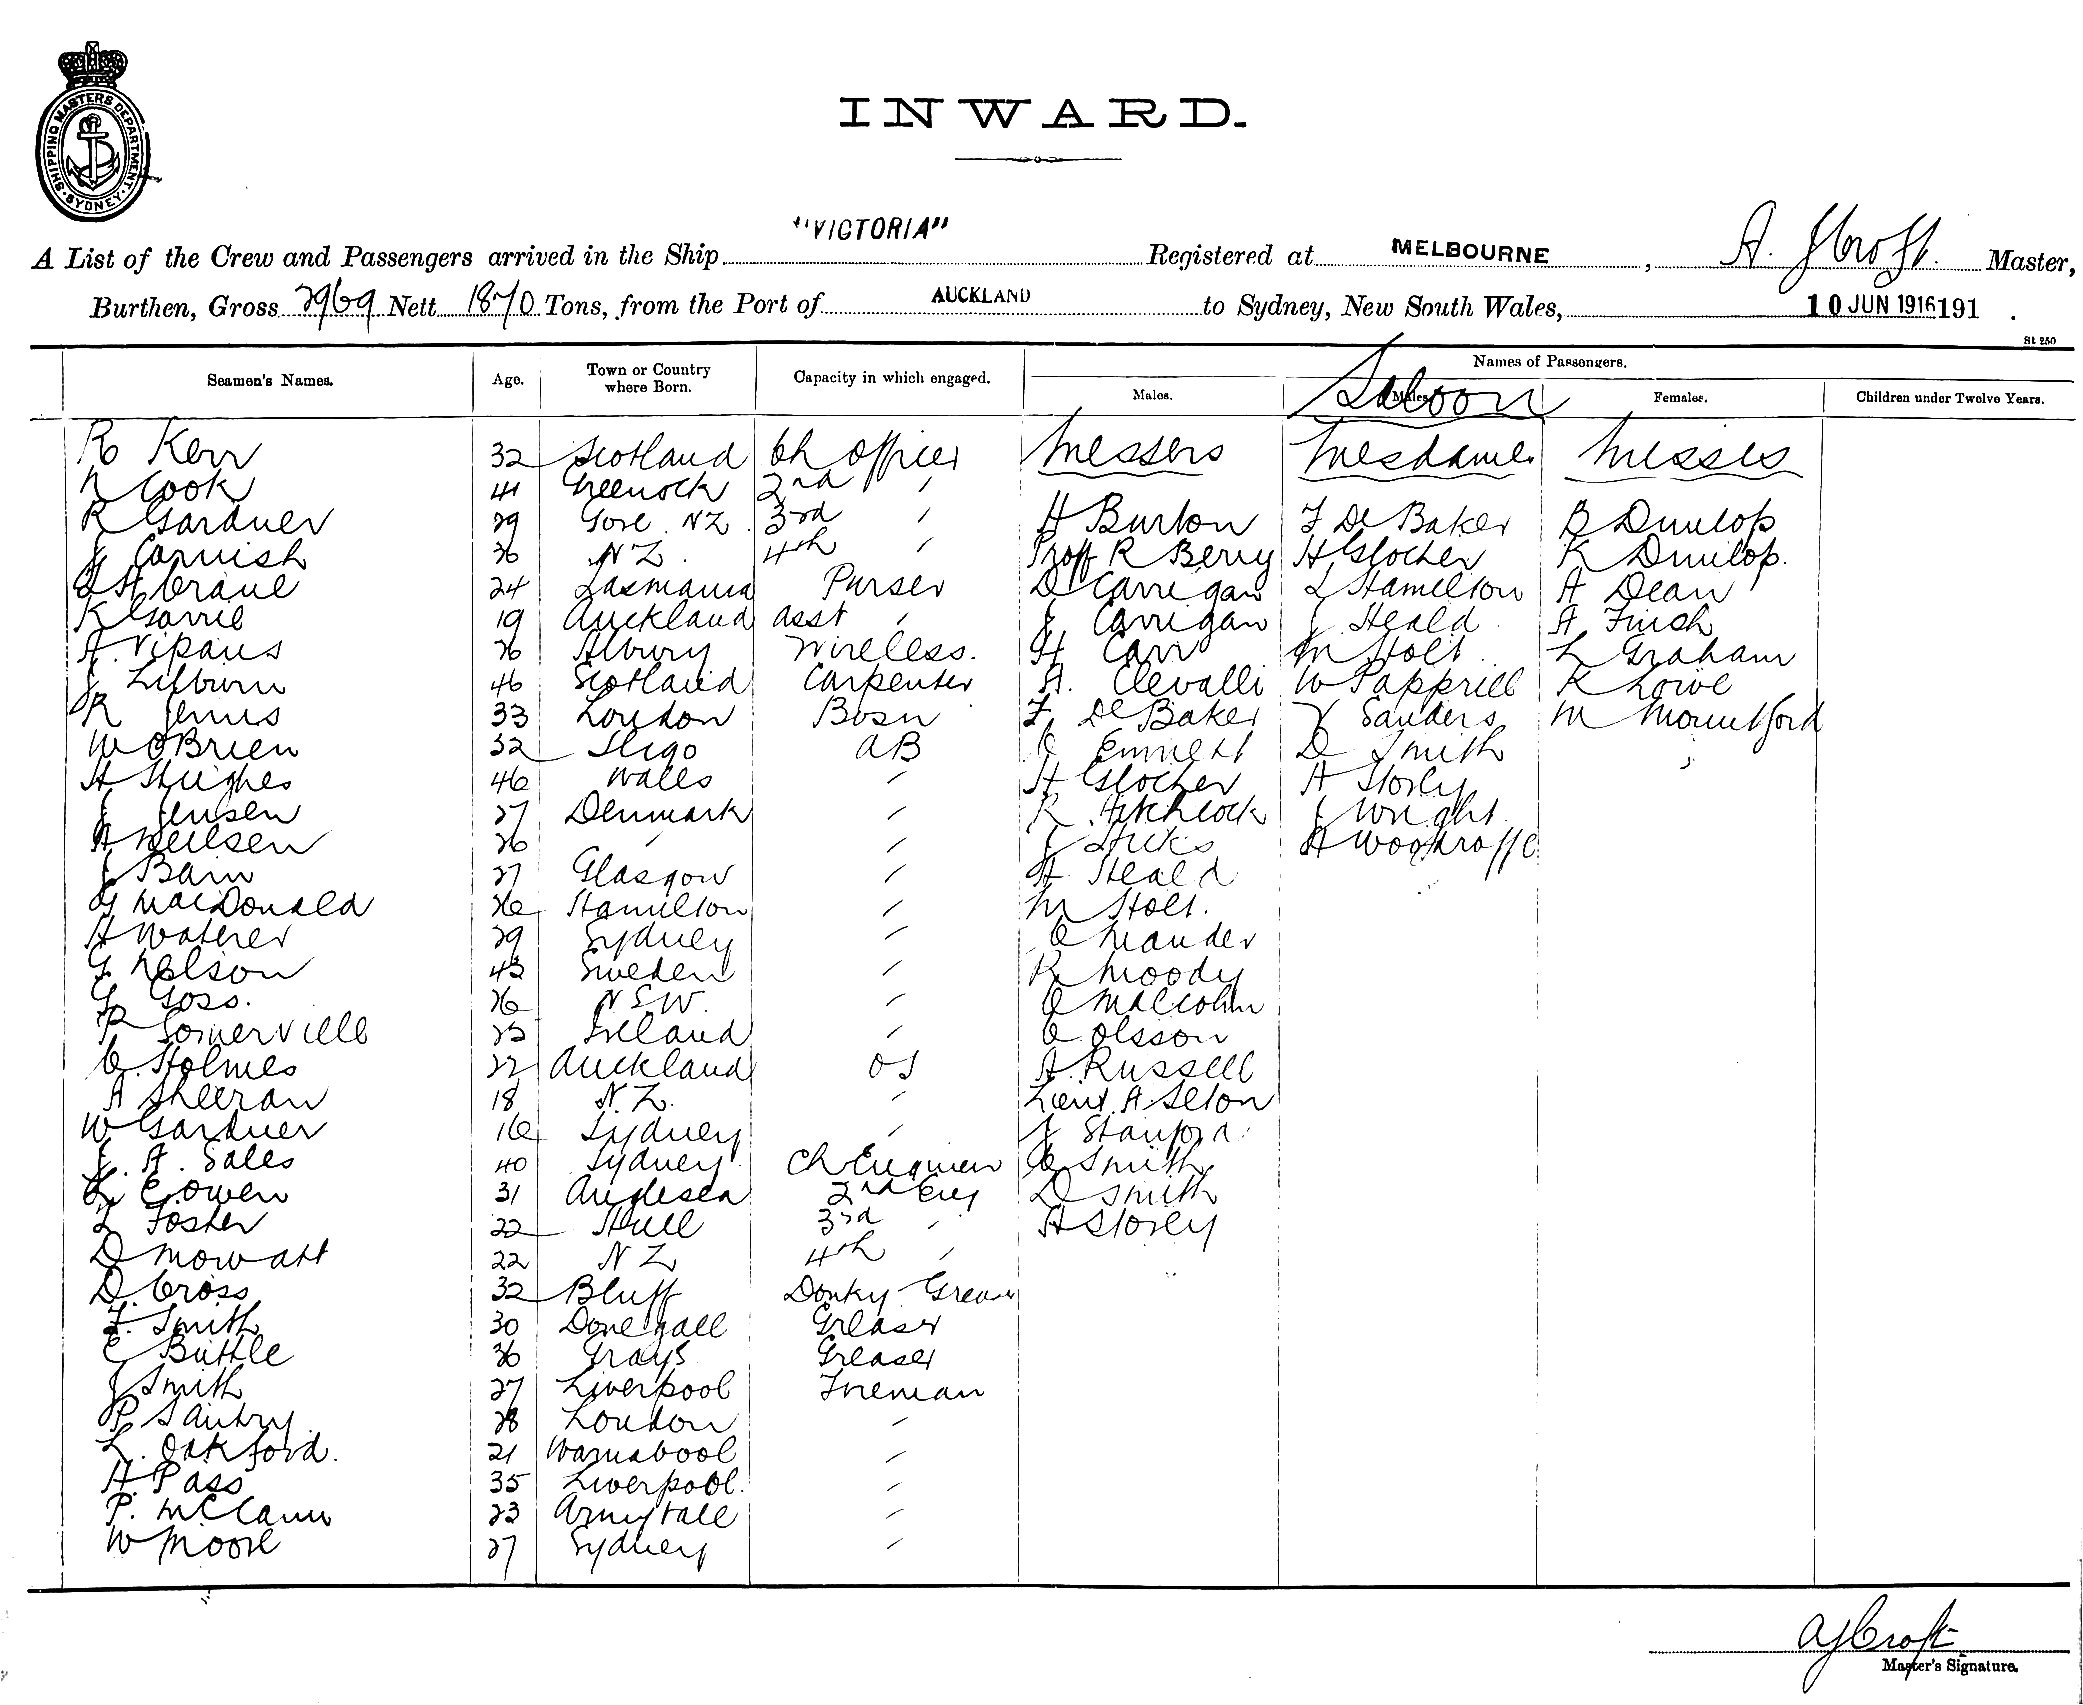 SHIPPING MASTERS DEPARTMENT SYDNEY
INWARD.
A List of the Crew and Passengers arrived in the Ship "VICTORIA" Registered at MELBOURNE, A. J Croft. Master,
Burthen, Gross 2969 Nett 1870 Tons, from the Port of AUCKLAND to Sydney, New South Wales, 10 JUN 1916 191 .
St 250
Seamen's Names. Age. Town or Country where Born. Capacity in which engaged. Names of Passengers.
Males. Males. Females. Children under Twelve Years.
Saloon
R Kerr 32 Scotland Ch Officer Messers Mesdames Misses
N Cook 41 Greenock 2nd "
R Gardner 29 Gore NZ 3rd " H Burton F De Baker B Dunlop
J Cornish 26 NZ. 4th " Proff R Berry H Glocher K Dunlop.
Crane 24 Tasmania Purser D Carrigan L Hamilton A Dean
K Gorrie 19 Auckland asst " J Carrigan J Heald A Finch
A. Vipans 26 Albury Wireless. H Carr M Holt L Graham
J Lilburn 46 Scotland Carpenter A. Clevalli W Papprill K Lowe
R Jenns 33 London Bosn F De Baker V Sanders M Mountford
W O'Brien 32 Sligo AB C Emmett D Smith
H Hughes 46 Wales " H Glocher A Storey
J Jensen 27 Denmark " R Hitchcock J Wright
A Neilsen 26 " " J Hicks A Woodroffe
J Bain 27 Glasgow " H Heald
G MacDonald 26 Hamilton " M Holt.
H Waterer 29 Sydney " C Mander
G Nelson 43 Sweden " R Moody
G Goss. 26 N.S.W. " C Malcolm
R Somerville 23 Ireland " C Olsson
C. Holmes 22 Auckland OS A. Russell
A Sheeran 18 N.Z. " Lieut. A Seton
W Gardner 16 Sydney " J Stanford
J. A. Sales 40 Sydney Ch Engineer C Smith
E. Owen 31 Anglesea 2nd Eng D Smith
L Foster 22 Hull 3rd " A Storey
D Mowatt 22 NZ 4th "
D. Cross 32 Bluff Donky Greaser
F. Smith 30 Donegall Greaser
C Buttle 36 Grays Greaser
J Smith 27 Liverpool Fireman
P Santry 28 London "
L. Oakford. 21 Warnabool "
H. Pass 35 Liverpool. "
P. McCann 23 "
W Moore 27 Sydney "
A J Croft
Master's Signature.